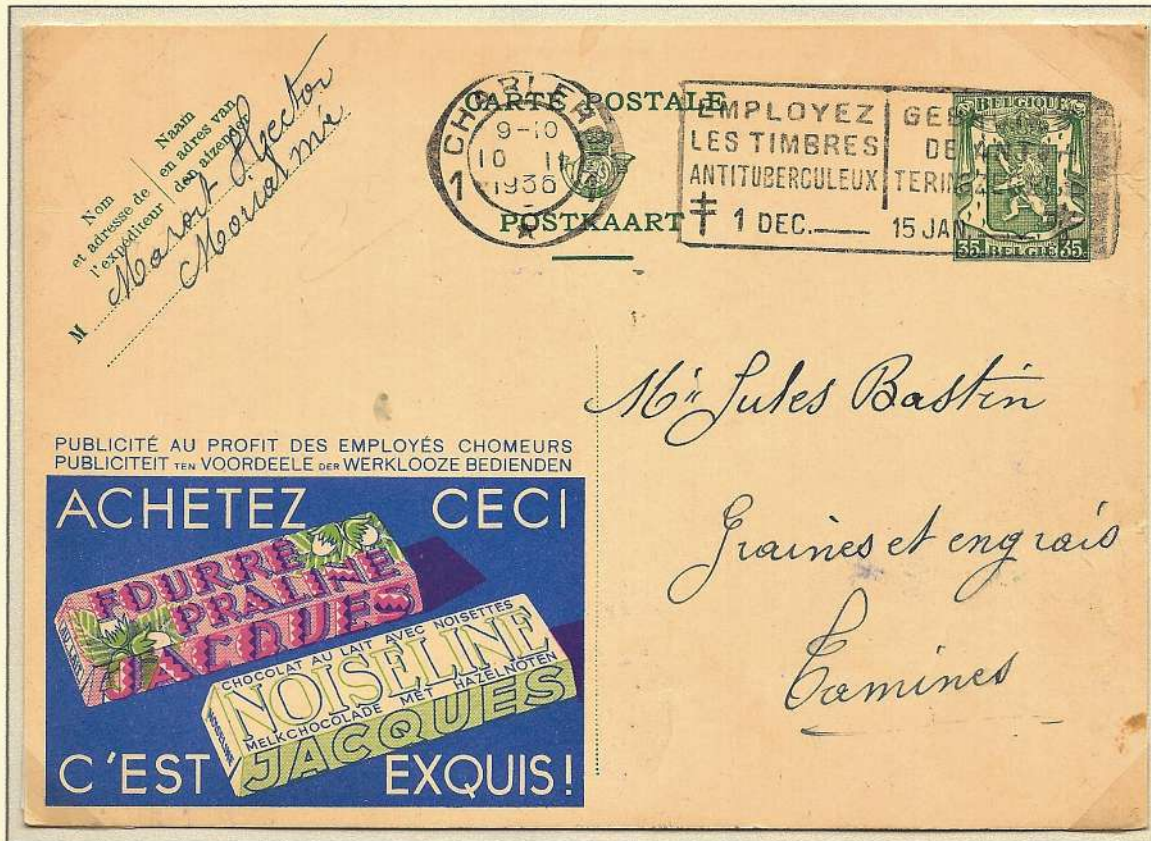 Nom
et adresse de
l'expéditeur
Naam
en adres van
den afzender
M
Hector
CARTE POSTALE
POSTKAART
1 CHARLER 1
9-10
10 II
1936
EMPLOYEZ
LES TIMBRES
ANTITUBERCULEUX
1 DEC. 15 JAN
BELGIQUE
35 BELGIË 35c
Mr Jules Bastin
Graines et engrais
Tamines
PUBLICITÉ AU PROFIT DES EMPLOYÉS CHOMEURS
PUBLICITEIT TEN VOORDEELE DER WERKLOOZE BEDIENDEN
ACHETEZ CECI
FOURRÉ
PRALINE
JACQUES
CHOCOLAT AU LAIT AVEC NOISETTES
NOISELINE
MELKCHOCOLADE MET HAZELNOTEN
JACQUES
NOISELINE
C'EST EXQUIS!